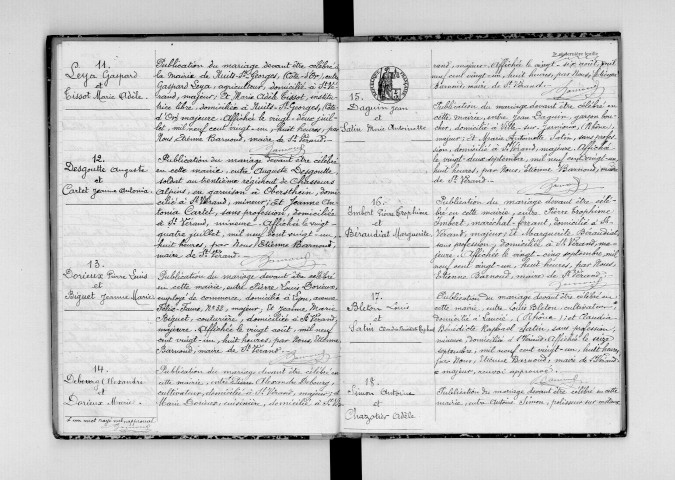 11.
Leya Gaspard
et
Tissot Marie Adèle
Publication du mariage devant être célébré à
la mairie de Nuits-St-Georges, (Côte-d'Or), entre
Gaspard Leya, agriculteur, domicilié à St Vé-
rand, majeur, et Marie Adèle Tissot, institu-
trice libre, domiciliée à Nuits-St-Georges, (Côte
d'Or) majeure. Affichée le vingt-deux juil-
let, mil neuf cent vingt-un, huit heures, par
Nous Etienne Barnoud, maire de St Vérand.
12.
Desgoutte Auguste
et
Cartet Jeanne Antonia.
Publication du mariage devant être célébré
en cette mairie, entre Auguste Desgoutte,
soldat au bataillon de Chasseurs
Alpins, en garnison à domi-
cilié à St Vérand, mineur, et Jeanne An-
tonia Cartet, sans profession, domiciliée
à St Vérand, mineure. Affichée le vingt-
quatre juillet, mil neuf cent vingt-un,
huit heures, par Nous Etienne Barnoud,
maire de St Vérand.
13.
Dorieux Pierre Louis
et
Biguet Jeanne Marie
Publication du mariage devant être célébré
en cette mairie, entre Pierre Louis Dorieux,
employé de commerce, domicilié à Lyon, avenue
Félix-Faure, No majeur, et Jeanne Marie
Biguet, couturière, domiciliée à St Vérand,
majeure. Affichée le vingt août, mil neuf
cent vingt-un, huit heures, par Nous Etienne
Barnoud, maire de St Vérand.
14.
Debourg Alexandre
et
Dorieux Marie.
Publication du mariage devant être célébré en
cette mairie, entre Alexandre Debourg,
cultivateur, domicilié à St Vérand, majeur, et
Marie Dorieux, cuisinière, domiciliée à St Vé-
rand, majeure. Affichée le vingt-six août, mil
neuf cent vingt-un, huit heures, par Nous Etienne
Barnoud, maire de St Vérand.
15.
Daguin Jean
et
Satin Marie Antoinette
Publication du mariage devant être célébré en
cette mairie, entre Jean Daguin, garçon bou-
cher, domicilié à Ville-sur-Jarnioux, (Rhône),
majeur, et Marie Antoinette Satin, sans profes-
sion, domiciliée à St Vérand, majeure. Affichée
le vingt-deux septembre, mil neuf cent vingt-un,
huit heures, par Nous, Etienne Barnoud, maire
de St Vérand.
16.
Imbert Pierre Trophime
et
Béraudiat Marguerite.
Publication du mariage devant être célé-
bré en cette mairie, entre Pierre Trophime
Imbert, maréchal-ferrant, domicilié à St
Vérand, majeur, et Marguerite Béraudiat,
sans profession, domiciliée à St Vérand, ma-
jeure. Affichée le vingt-cinq septembre, mil
neuf cent vingt-un, huit heures, par Nous,
Etienne Barnoud, maire de St Vérand.
17.
Bleton Louis
et
Satin
Publication du mariage devant être célébré en
cette mairie, entre Louis Bleton, cultivateur
domicilié à (Rhône), et Claudia
Bénédicte Satin, sans profession,
mineure, domiciliée à St Vérand. Affichée le seize
septembre, mil neuf cent vingt-un, huit heures,
par Nous, Etienne Barnoud, maire de St Vérand.
majeur, renvoi approuvé.
18.
Simon Antoine
et
Chazotier Adèle.
Publication du mariage devant être célébré en cette
mairie, entre Antoine Simon, polisseur sur métaux